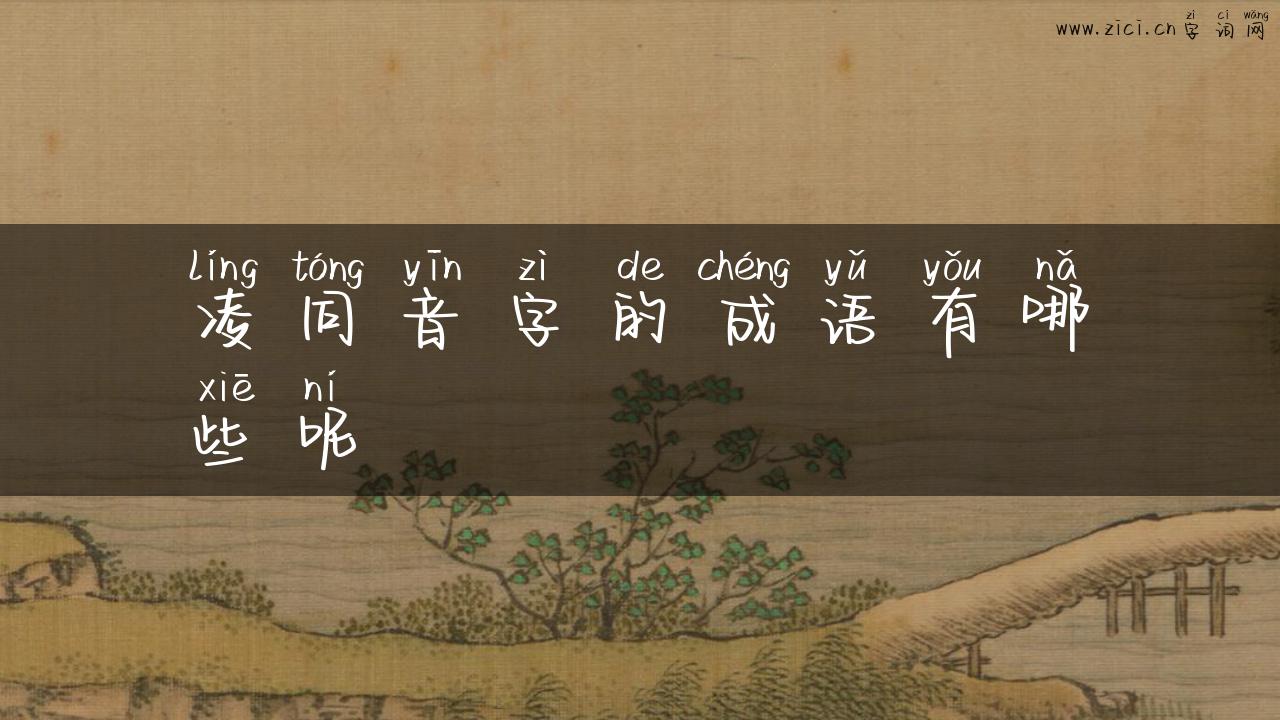 zì cí wǎng
www.zici.cn 字词网
líng tóng yīn zì de chéng yǔ yǒu nǎ
凌同音字的成语有哪
xiē ní
些呢